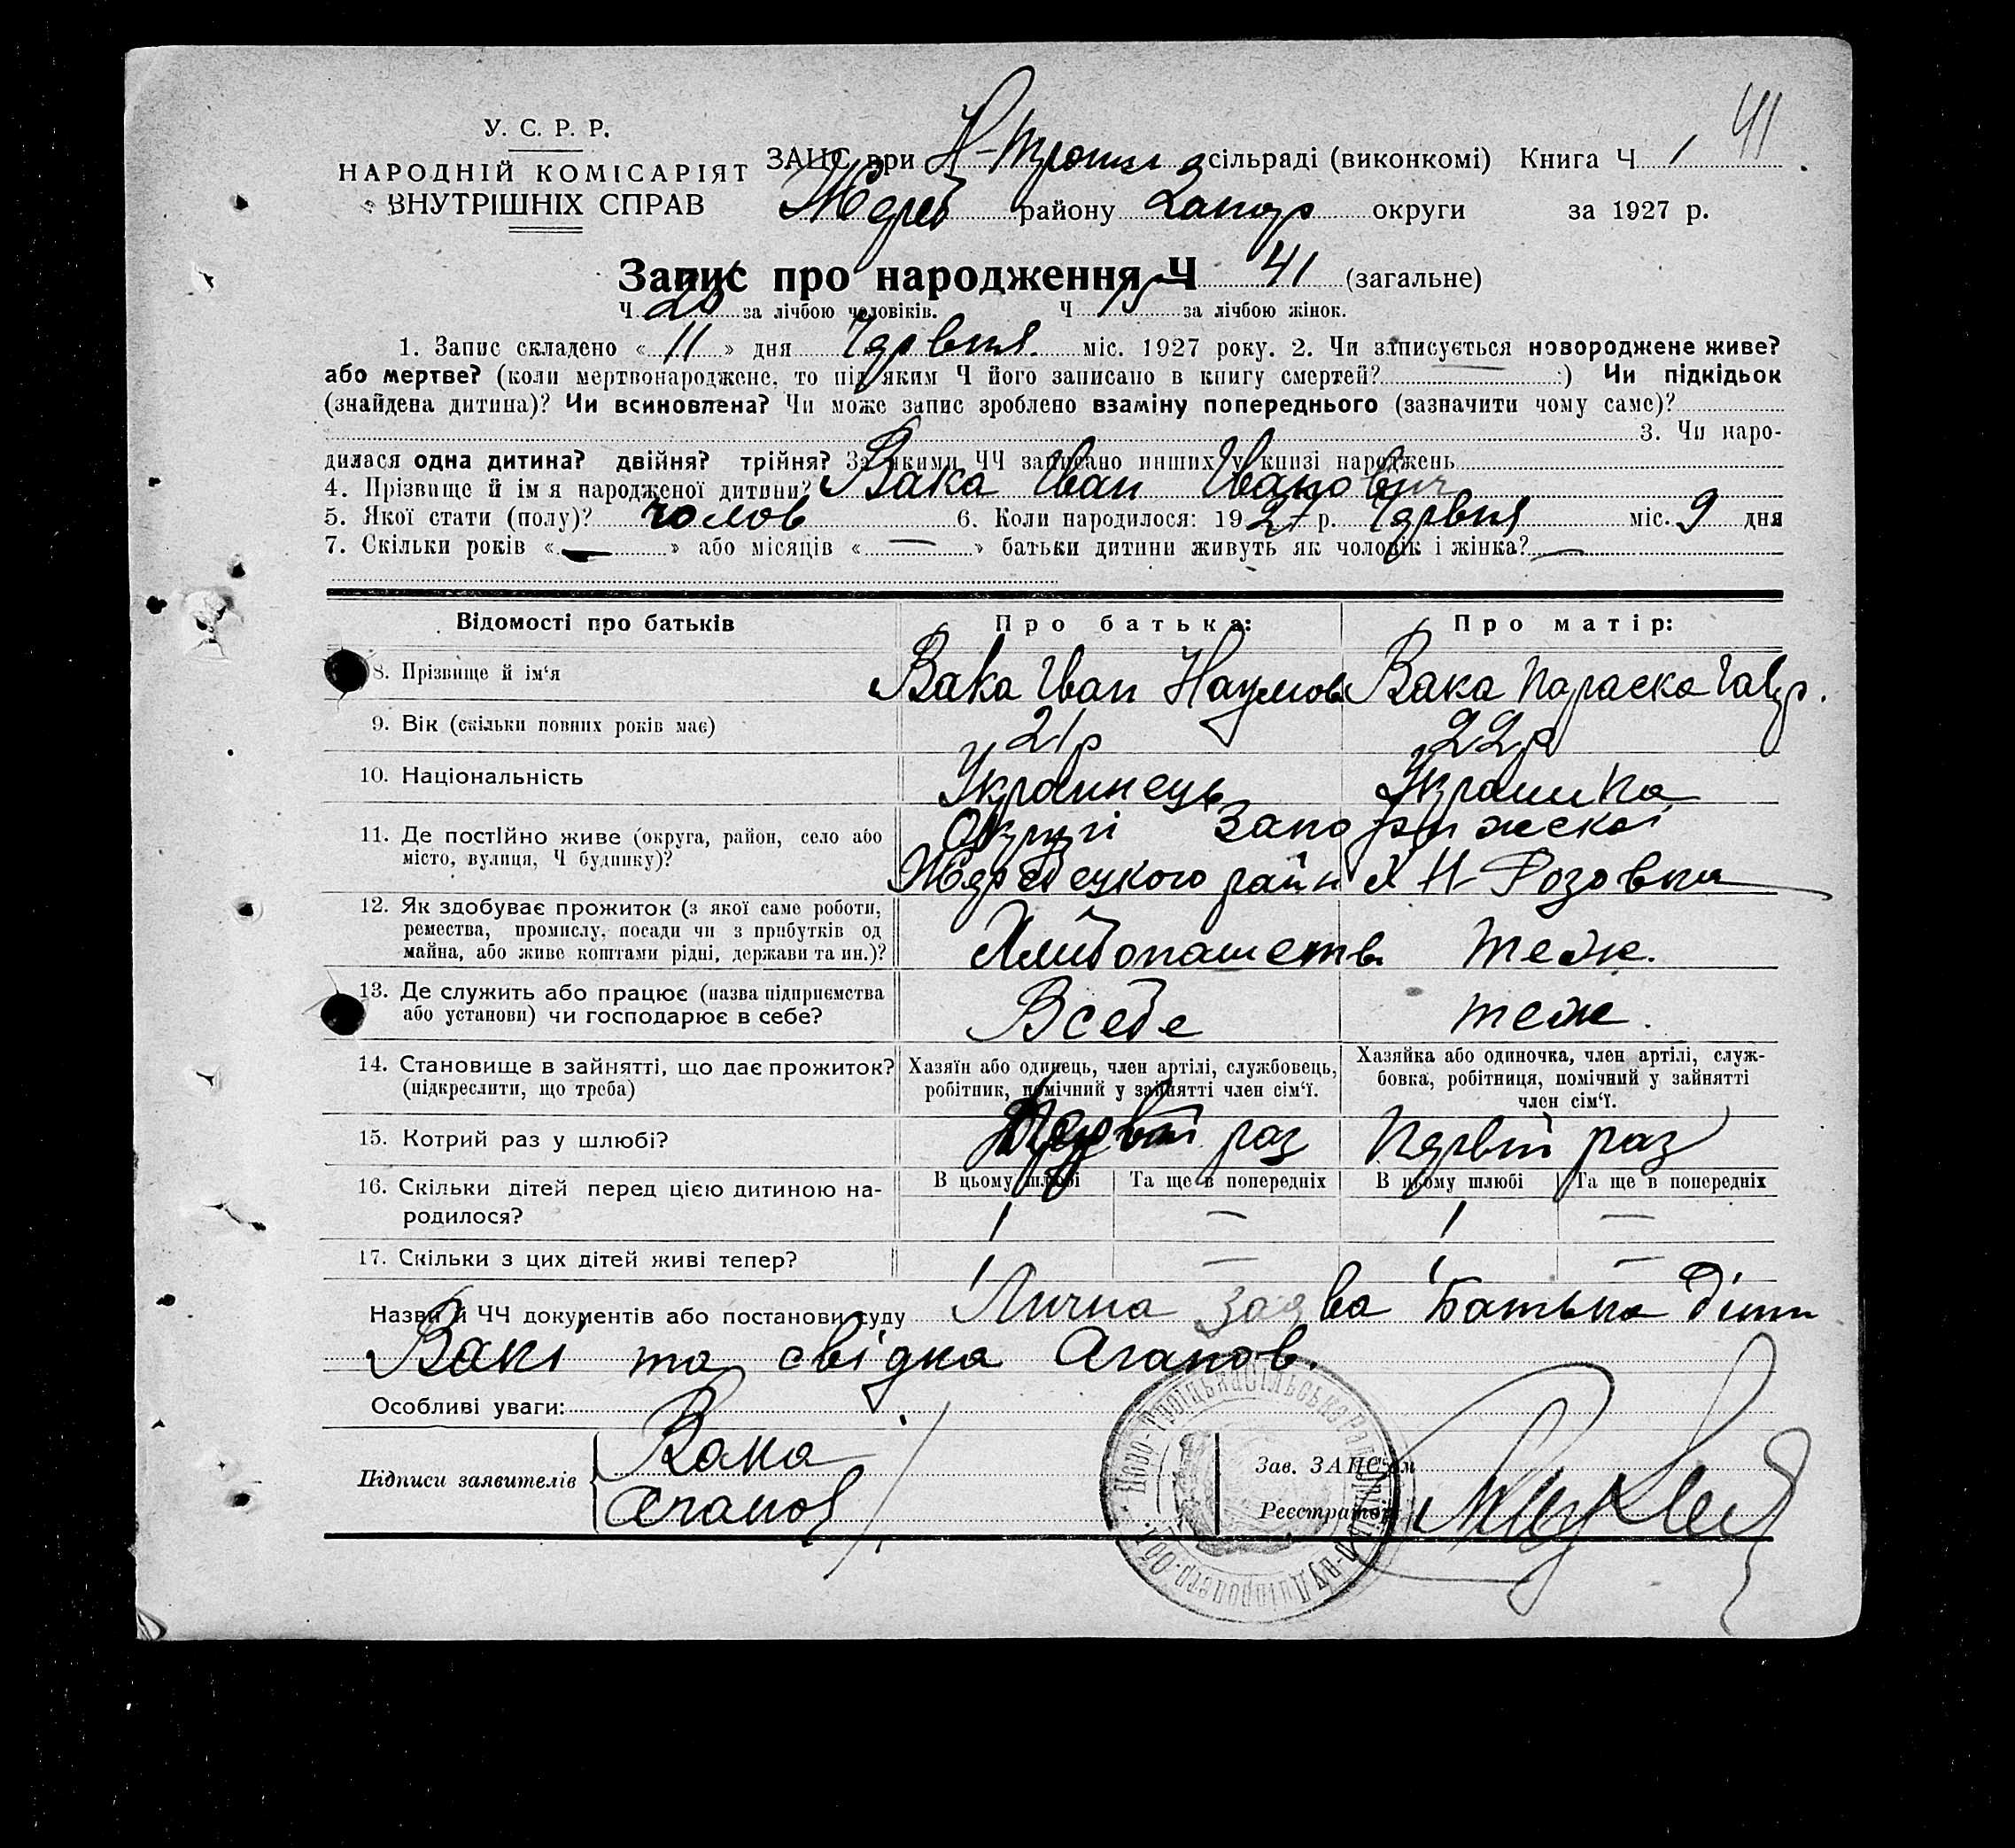 41
У. С. Р. Р.
НАРОДНІЙ КОМІСАРІЯТ
ВНУТРІШНІХ СПРАВ
ЗАПС при Н-Троиц сільраді (виконкомі) Книга Ч 1
Жереб району Запор округи за 1927 р.
Запис про народження Ч 41 (загальне)
Ч 26 за лічбою чоловіків. Ч 15 за лічбою жінок.
1. Запис складено « 11 » дня Червня міс. 1927 року. 2. Чи записується новороджене живе?
або мертве? (коли мертвонароджене, то під яким Ч його записано в книгу смертей? ) Чи підкідьок
(знайдена дитина)? Чи всиновлена? Чи може запис зроблено взаміну попереднього (зазначити чому саме)?
3. Чи наро-
дилася одна дитина? двійня? трійня? За якими ЧЧ записано инших у книзі народжень
4. Прізвище й ім'я народженої дитини? Вака Іван Іванович
5. Якої стати (полу)? чолов 6. Коли народилося: 1927 р. Червня міс. 9 дня
7. Скільки років « — » або місяців « — » батьки дитини живуть як чоловік і жінка? —
Відомості про батьків Про батька: Про матір:
8. Прізвище й ім'я Вака Іван Наумов Вака Параска Гавр.
9. Вік (скільки повних років має) 21р 22р
10. Національність Украинець Украинка
11. Де постійно живе (округа, район, село або Округі Запоріжскоі
місто, вулиця, Ч будинку)? Жеребецкого район х Н-Розовка
12. Як здобуває прожиток (з якої саме роботи,
ремества, промислу, посади чи з прибутків од
майна, або живе коштами рідні, держави та ин.)? Хлибопашеств теж.
13. Де служить або працює (назва підприємства
або установи) чи господарює в себе? Всебе теж.
14. Становище в зайнятті, що дає прожиток? Хазяїн або одинець, член артілі, службовець, Хазяйка або одиночка, член артілі, служ-
(підкреслити, що треба) робітник, помічний у зайнятті член сім'ї. бовка, робітниця, помічний у зайнятті
член сім'ї.
15. Котрий раз у шлюбі? Первій раз Первій раз
16. Скільки дітей перед цією дитиною на- В цьому шлюбі Та ще в попередніх В цьому шлюбі Та ще в попередніх
родилося? 1 — 1 —
17. Скільки з цих дітей живі тепер? 1 — 1 —
Назви й ЧЧ документів або постанови суду Лична заява Батька
Вакі та свідка Агапов.
Особливі уваги:
Підписи заявителів Вака
Агапов
Зав. ЗАПС'ом
Реєстратор
Ново-Троїцька Сільська Рада